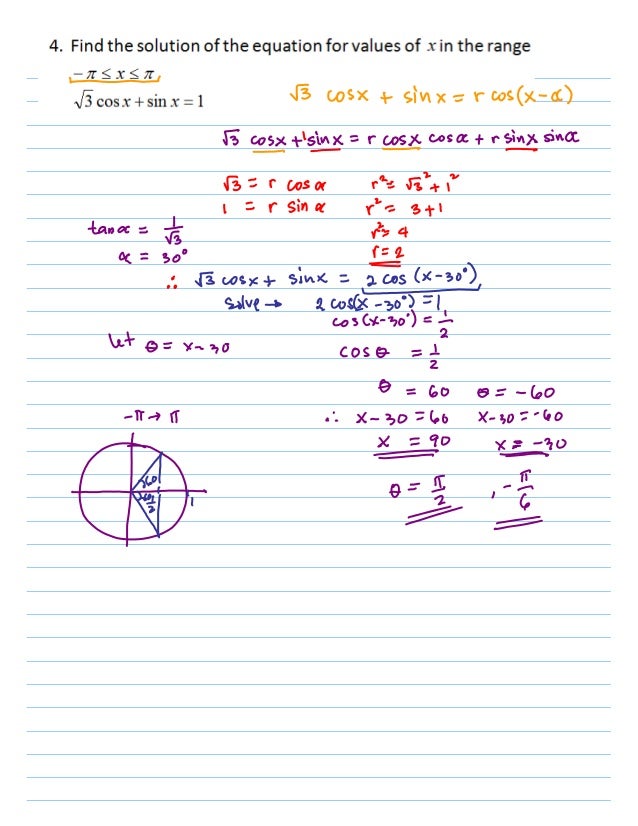 4. Find the solution of the equation for values of x in the range
−π ≤ x ≤ π,
√3 cos x + sin x = 1
√3 cosx + sinx = r cos(x−α)
√3 cosx + 1 sinx = r cosx cosα + r sinx sinα
√3 = r cosα
1 = r sinα
r² = √3² + 1²
r² = 3+1
r² = 4
r = 2
tanα = 1/√3
α = 30°
∴ √3 cosx + sinx = 2 cos(x−30°)
Solve → 2 cos(x−30°) = 1
cos(x−30°) = 1/2
let θ = x−30
cosθ = 1/2
θ = 60 θ = −60
∴ x−30 = 60 x−30 = −60
x = 90 x = −30
θ = π/2 , −π/6
−π → π
60
60
1/2
1